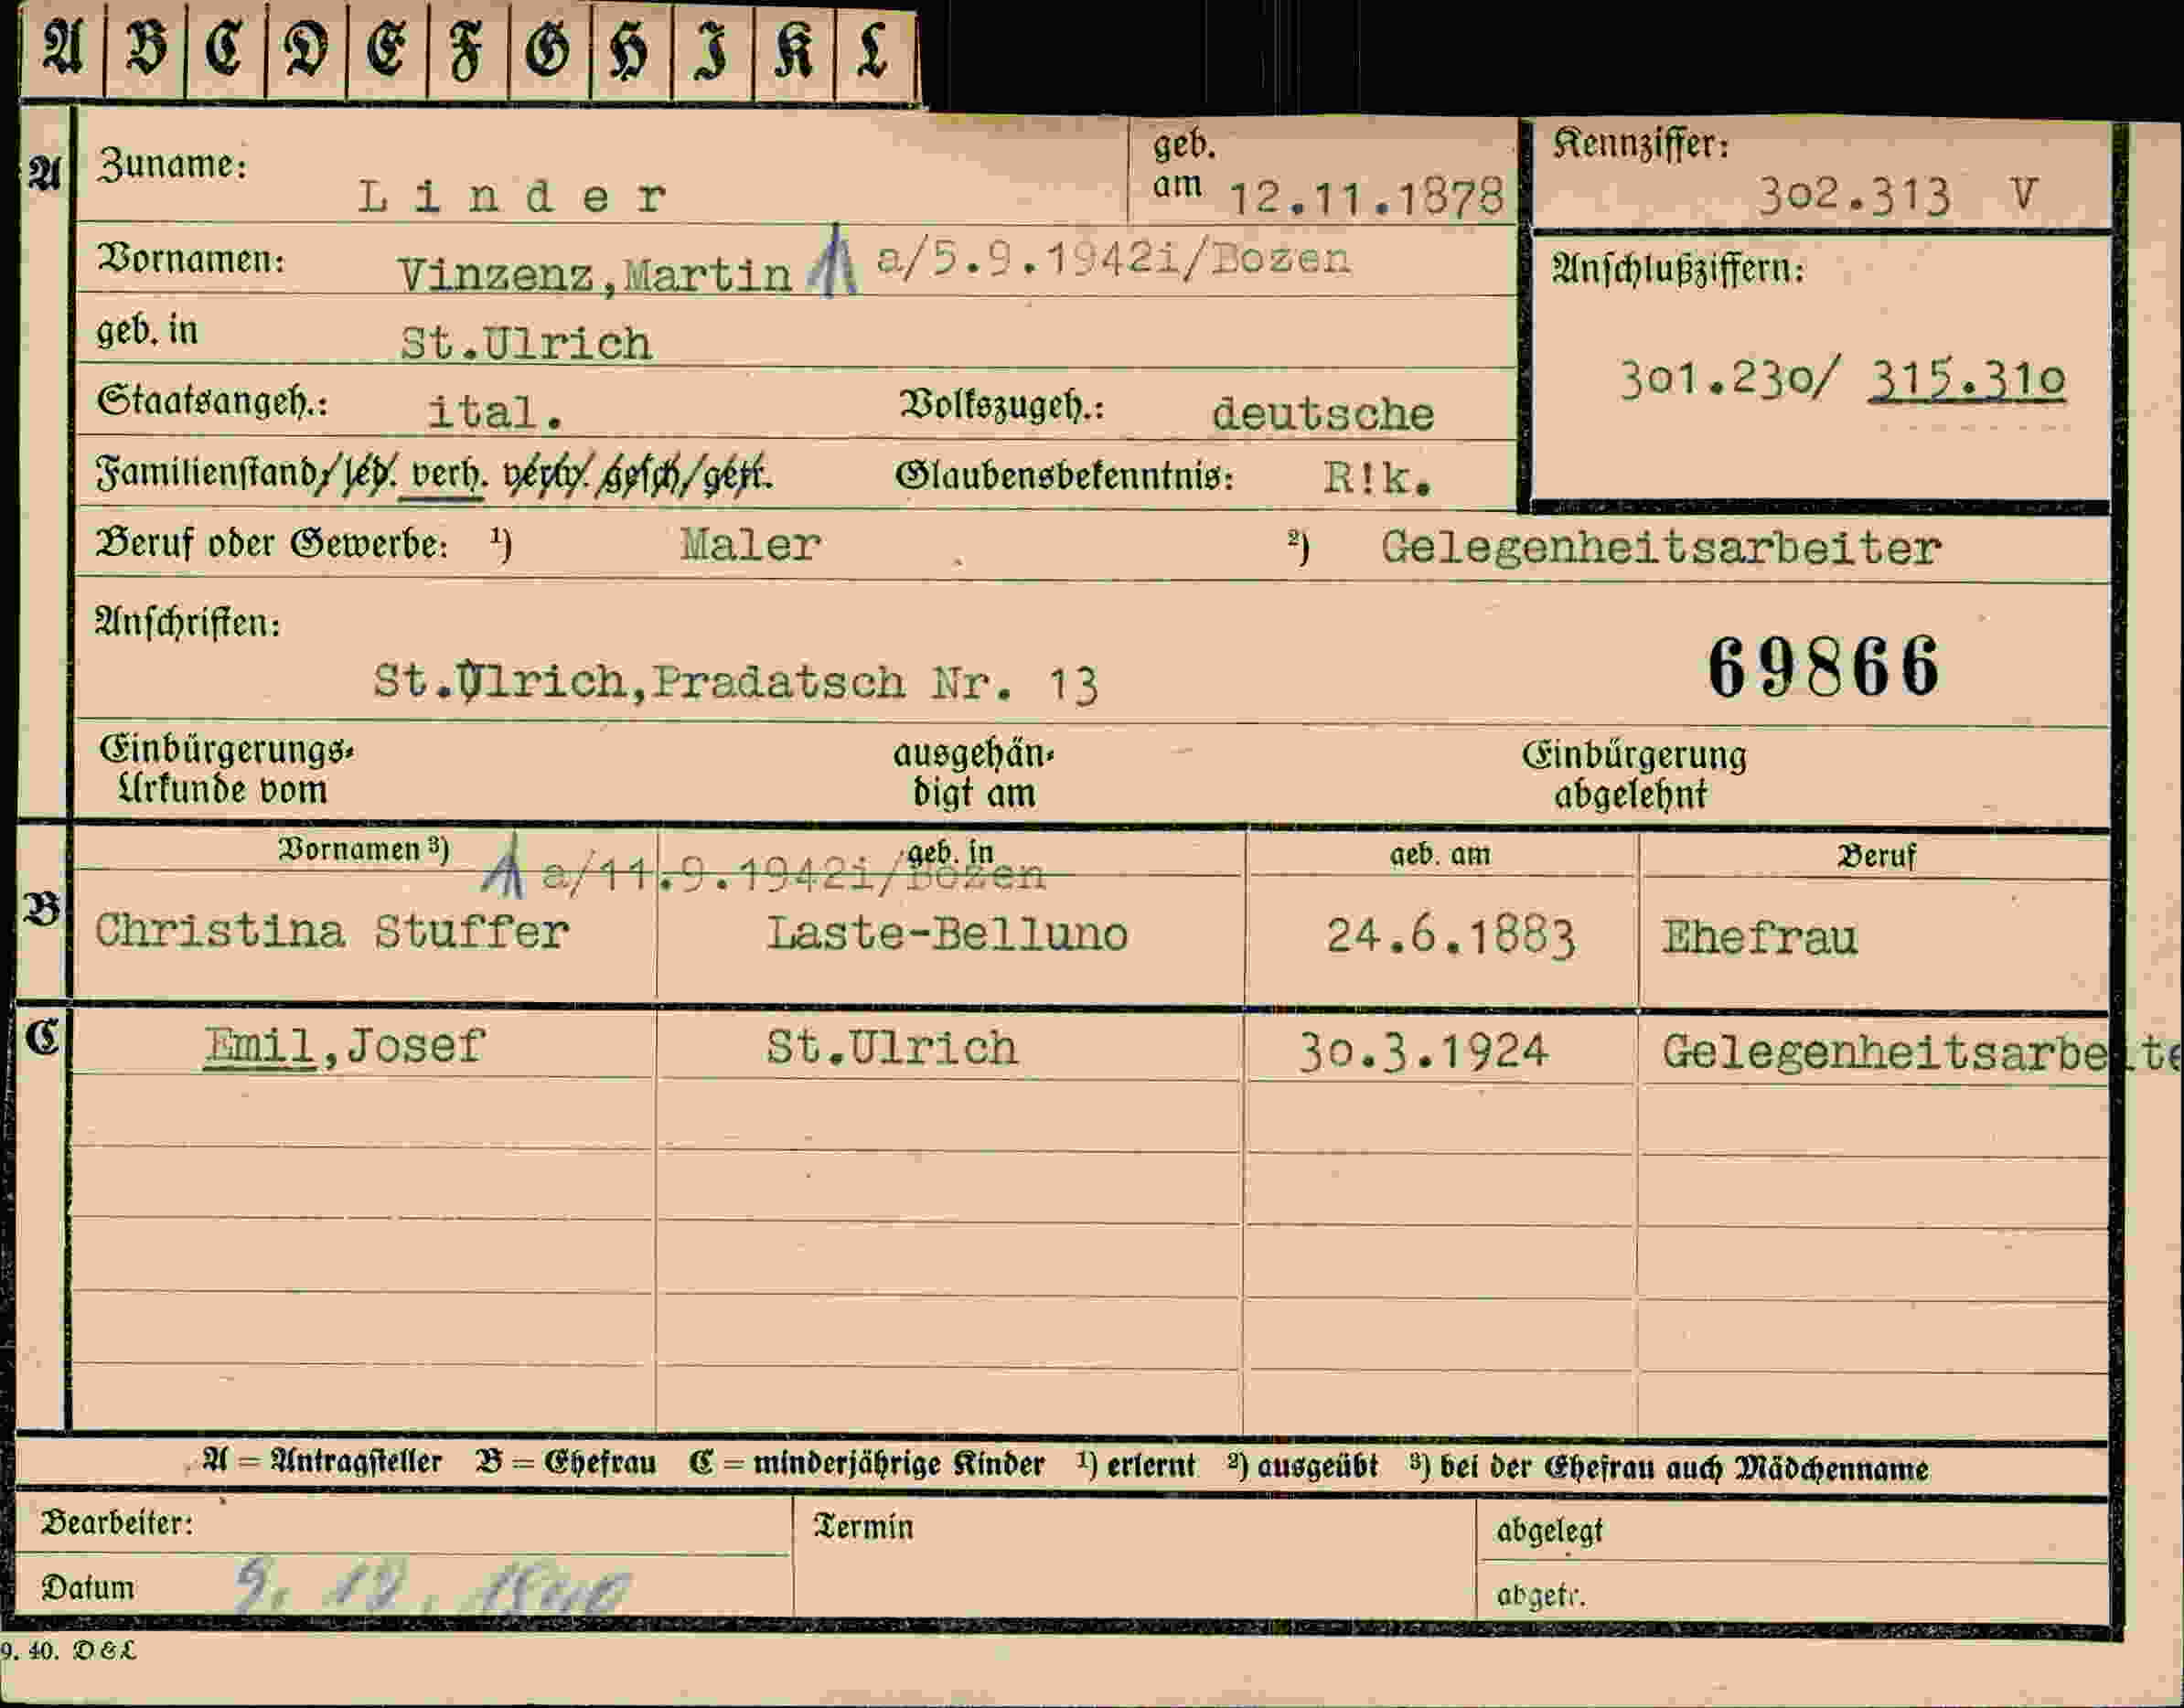 A B C D E F G H I K L
A Zuname: Linder geb. am 12.11.1878 Kennziffer: 302.313 V
Vornamen: Vinzenz,Martin a/5.9.1942i/Bozen
Anschlußziffern: 301.230/ 315.310
geb. in St.Ulrich
Staatsangeh.: ital. Volkszugeh.: deutsche
Familienstand/led. verh. verw. gesch/getr. Glaubensbekenntnis: R!k.
Beruf oder Gewerbe: ¹) Maler ²) Gelegenheitsarbeiter
Anschriften:
St.Ulrich,Pradatsch Nr. 13 69866
Einbürgerungs-Urkunde vom ausgehändigt am Einbürgerung abgelehnt
Vornamen ³) geb. in geb. am Beruf
a/11.9.1942i/Bozen
B Christina Stuffer Laste-Belluno 24.6.1883 Ehefrau
C Emil,Josef St.Ulrich 30.3.1924 Gelegenheitsarbeite
A = Antragsteller B = Ehefrau C = minderjährige Kinder ¹) erlernt ²) ausgeübt ³) bei der Ehefrau auch Mädchenname
Bearbeiter: Termin abgelegt
Datum 9. 12. 1940 abgetr.
9. 40. D & L